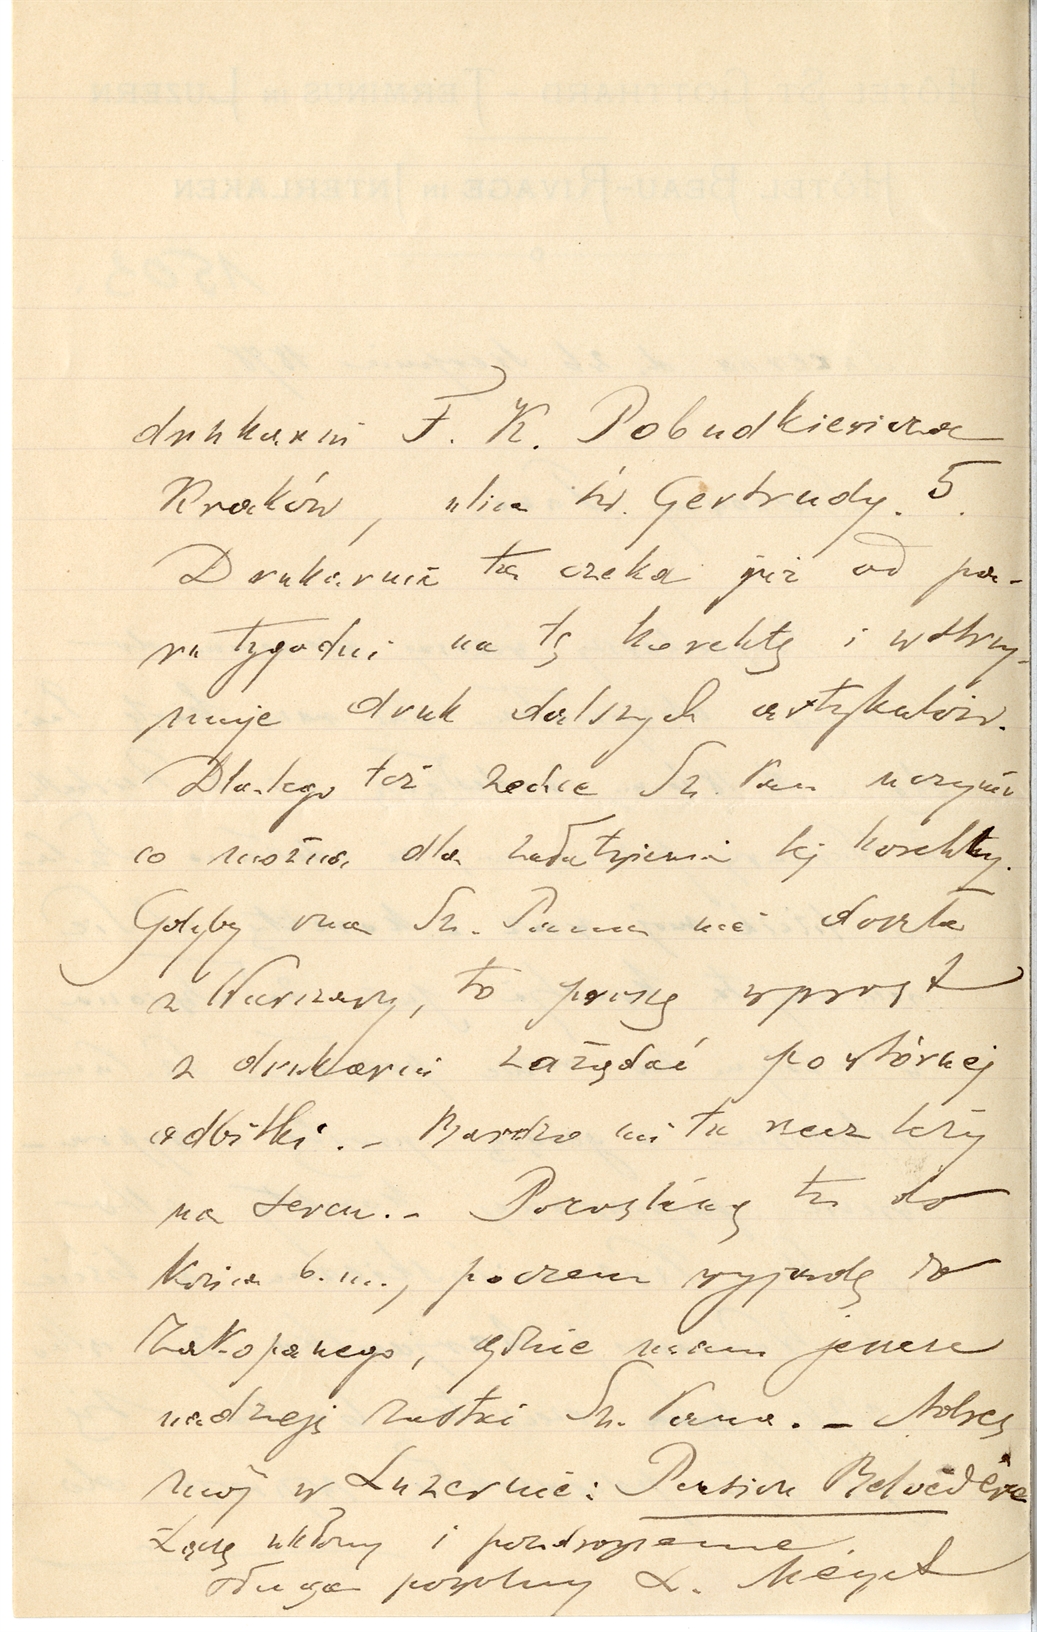 drukarni F. K. Pobudkiewicza
Kraków, ulica św. Gertrudy. 5.
Drukarnia ta czeka już od pa-
ru tygodni na tę korektę i wstrzy-
muje druk dalszych artykułów.
Dlatego też zechce Sz. Pan uczynić
co można dla załatwienia tej korekty.
Gdyby ona Sz. Panu nie doszła
z Warszawy, to proszę wprost
z drukarni zażądać powtórnej
odbitki. – Bardzo mi ta rzecz leży
na sercu. – Pozostanę tu do
końca b.m., poczem wyjadę do
Zakopanego, gdzie mam jeszcze
nadzieję zastać Sz. Pana. – Adres
mój w Luzernie: Pension Belvédère
Łączę ukłony i pozdrowienie
sługa powolny L. Méyet